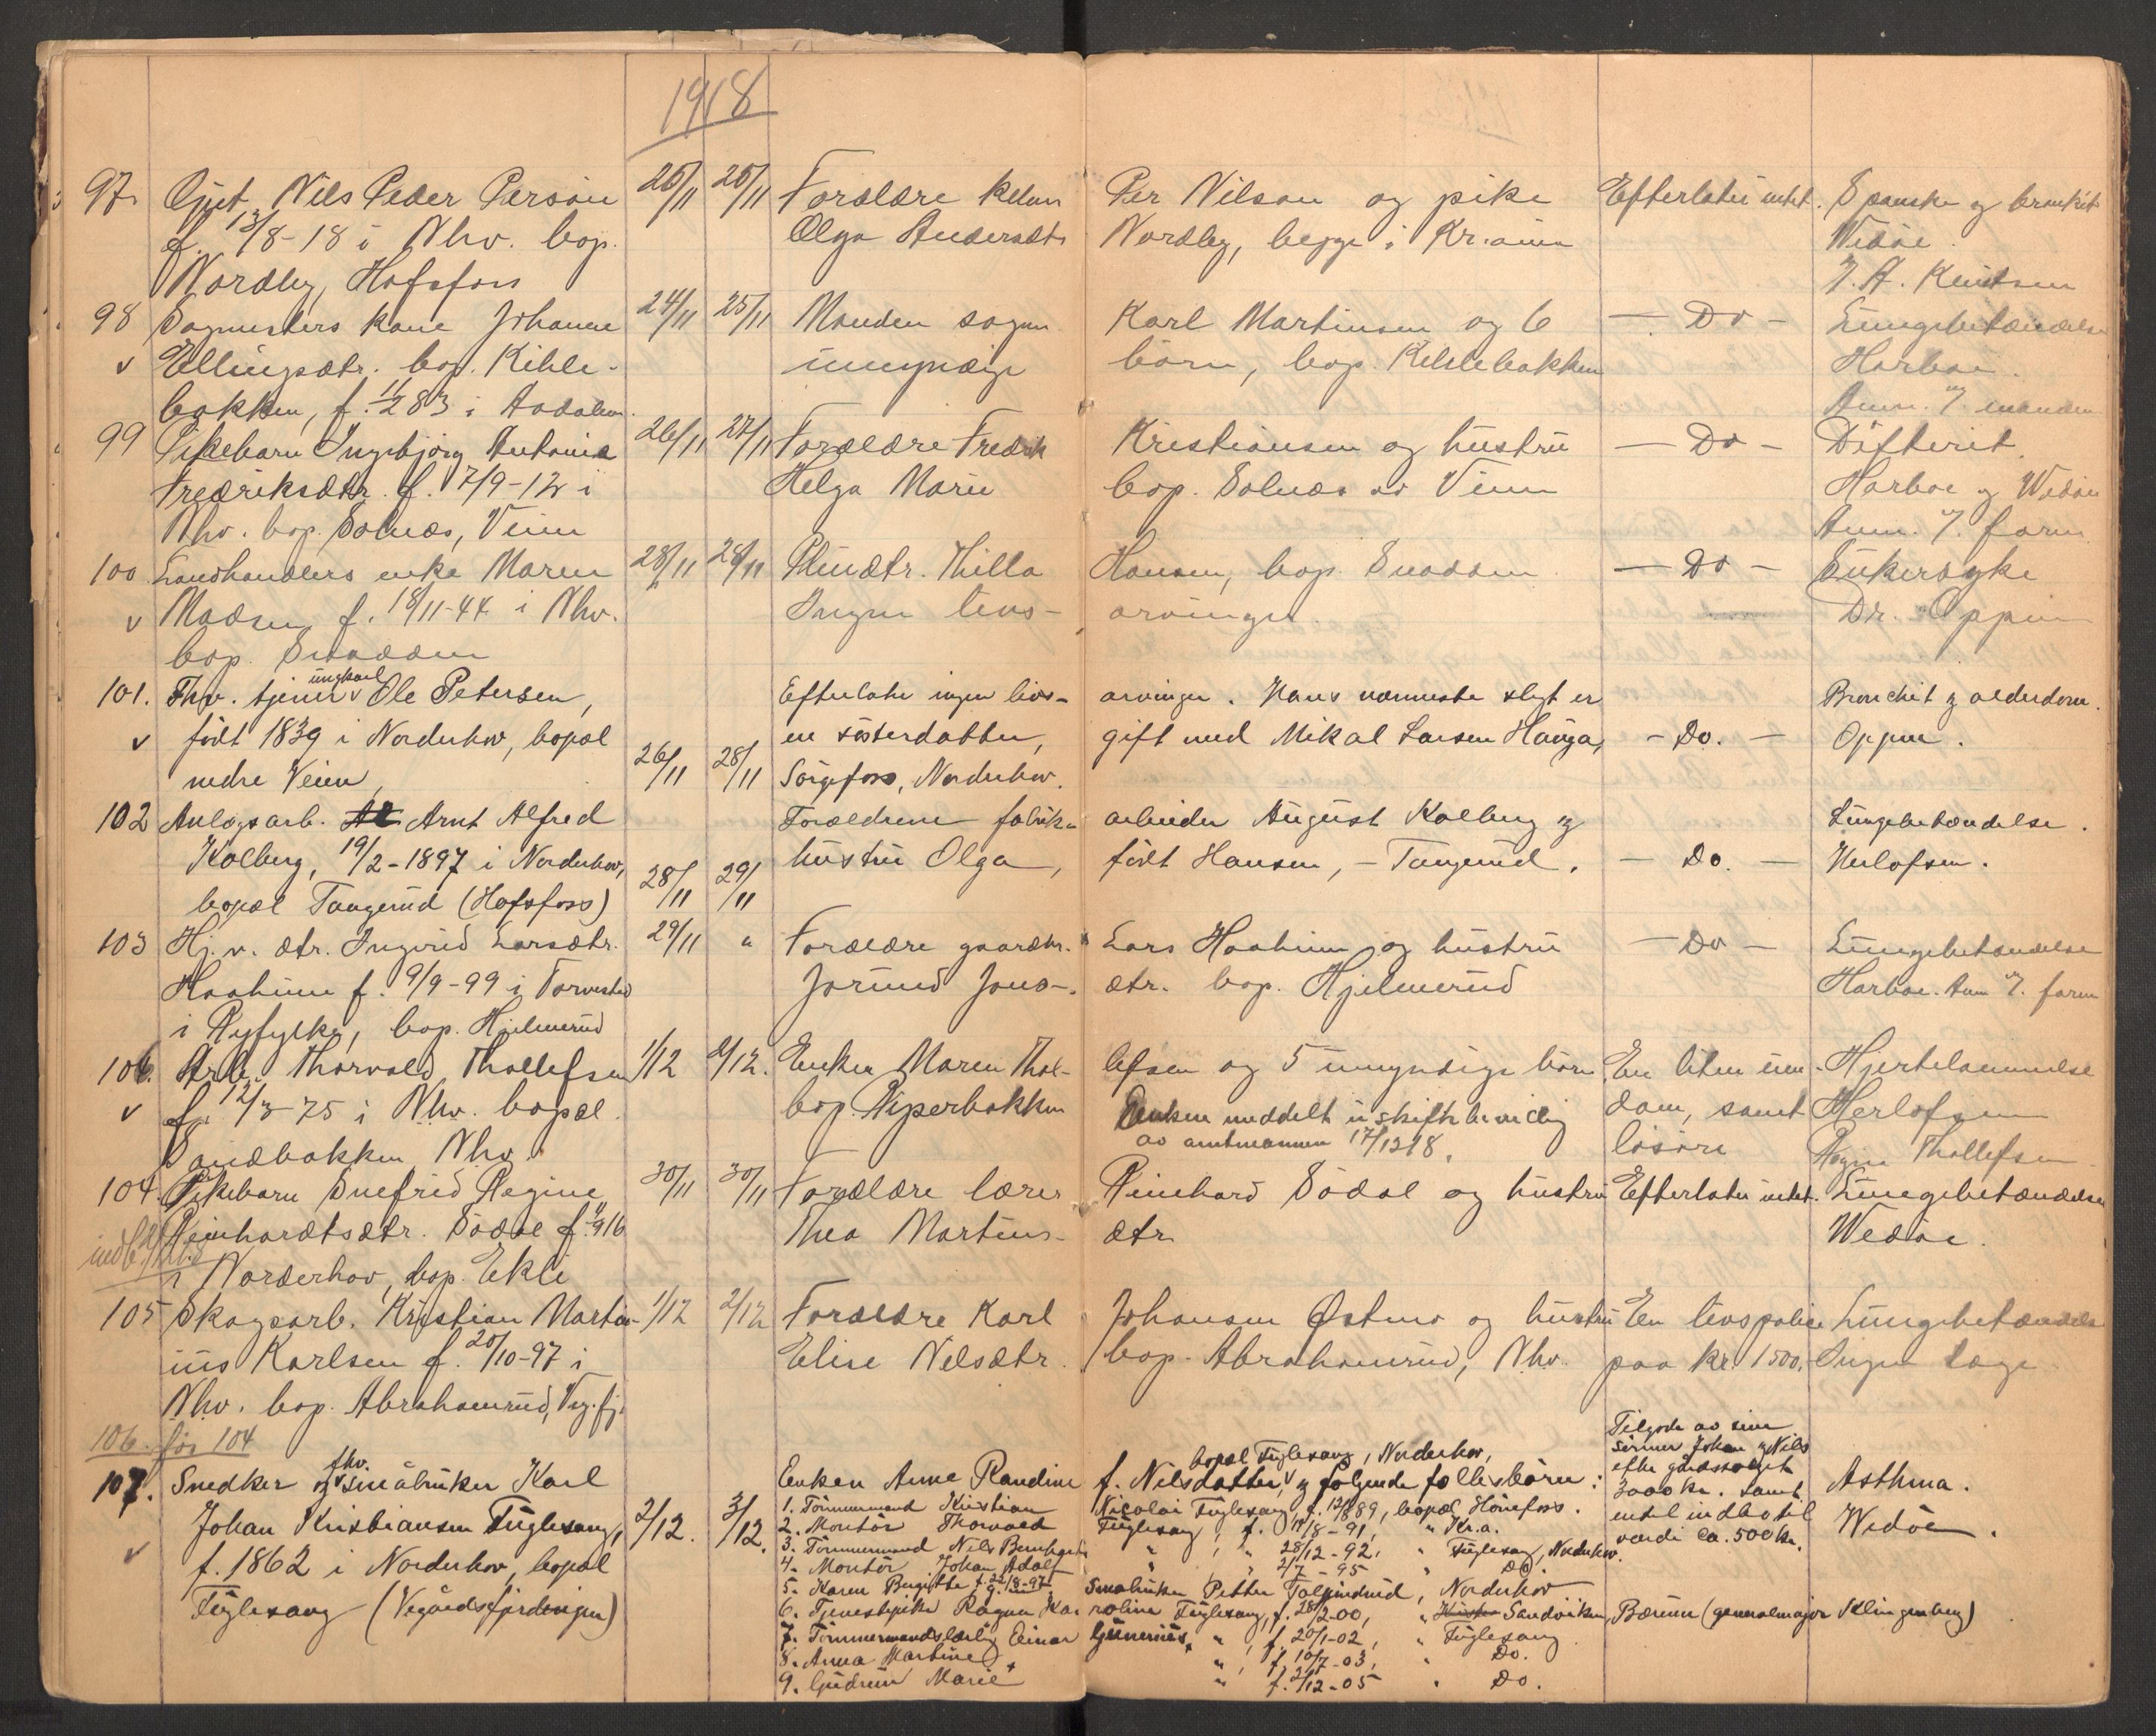 1918
97. Gjut Nils Peder Persön 25/11 25/11 Forældre Per Nilsen og pike Efterlater intet. Spanske og bronkit
f. 13/8-18 i Nhv. bop. Olga Andersdtr Nordby, begge i Kr.ania Wedöe.
Nordby, Hofsfoss J. A. Knutsen
98 Sagmesters kone Johanne 24/11 25/11 Manden sagm Karl Martinsen og 6 — Do — Lungebetændelse
v Ellingsdtr. bop. Kihle- umyndige börn, bop. Kihlebakken Harboe.
bakken, f. 11/2 83 i Aadalen. Anm. af manden
99 Pikebarn Ingebjörg Antonie 26/11 27/11 Forældre Fredrik Kristiansen og hustru — Do — Difterit.
Fredriksdtr. f. 7/9-12 i Helga Marie bop. Solnæs av Veien Harboe og Wedöe
Nhv. bop. Solnæs, Veien Anm. af faren
100 Landhandlers enke Maren 28/11 28/11 Pleiedtr. Thilla Hansen, bop. Snaddem — Do — Sukersyke
v Madsen f. 18/11-44 i Nhv. Ingen livs- arvinger. Dr. Oppen
bop. Snadden
101. Fhv. tjener ungkarl Ole Petersen, Efterlater ingen livs- arvinger. Hans nærmeste slegt er Bronchit og alderdom.
v født 1839 i Norderhov, bopæl 26/11 28/11 en søsterdatter, gift med Mikal Larsen Hauga, - Do. — Oppen.
nedre Veien, Sørgefoss, Norderhov.
102 Anlegsarb. Arnt Alfred Forældrene fabrik- arbeider August Kolberg og Lungebetændelse.
Kolberg, 19/2-1897 i Norderhov, 28/11 29/11 hustru Olga, født Hansen, - Tangerud. — Do. — Herlofsen.
bopæl Tangerud (Hofsfoss)
103 Hj. v. dtr. Ingrid Larsdtr. 29/11 " Forældre gaardbr. Lars Haaheim og hustru — Do — Lungebetændelse
Haaheim f. 9/9-99 i Torvestad Jorund Jons- dtr. bop. Hjelmerud Harboe. Anm af faren
i Ryfylke, bop. Hjelmerud
106. Arb. Thorvald Thollefsen 1/12 2/12. Enken Maren Thol- lefsen og 5 umyndige börn En liten eien- Hjertelammelse
v f. 12/3-75 i Nhv. bopæl bop. Piperbakken Enken meddelt uskiftebevilling dom, samt Herlofsen
Sandbakken Nhv. av amtmannen 17/12 18. lösöre Regine Thollefsen
104. Pikebarn Snefrid Regine 30/11 30/11 Forældre lærer Reinhard Södal og hustru Efterlater intet. Lungebetændelse
Reinhardtsdtr. Södal f. 916 Thea Martins- dtr. Wedöe.
i Norderhov, bop. Ekli
105 Skogsarb. Kristian Martin- 1/12 2/12 Forældre Karl Johansen Østmo og hustru En livspolice Lungebetændelse
ius Karlsen f. 20/10-97 i Elise Nilsdtr. bop. Abrahamrud, Nhv. paa kr. 1500. Ingen læge
Nhv. bop. Abrahamrud, Veg.fj.
106. før 104
107. Snedker og fhv. småbruker Karl Enken Anne Randine f. Nilsdatter, bopæl Fuglesang, Norderhov, og følgende fellesbörn: Tilgode av sine
v Johan Kristiansen Fuglesang, 2/12. 3/12. sönner Johan og Nils
f. 1862 i Norderhov, bopæl efter gårdssalget
Fuglesang (Vegårdsfjerdingen) 3000 kr. Samt
endel indbo til
verdi ca. 500 kr.
Asthma.
Wedöe.
1. Tömmermand Kristian Nicolai Fuglesang, f. 12/8 89, bopæl Hönefoss.
2. Montör Thorvald Fuglesang, f. 14/8-91, " Kr.a.
3. Tömmermand Nils Bernhard " , " 28/12-92, " Fuglesang, Norderhov.
4. Montör Johan Adolf " " 2/7-95 " Do.
5. Karen Bergitte f. 22/8-97 g. m. Småbruker Petter Tolpinrud, Norderhov
6. Tjenestepike Ragna Karoline Fuglesang, f. 28/2-00, " Sandviken, Bærum (generalmajor Klingenberg)
7. Tömmermandslærling Einar Gunerius, " f. 20/1-02, " Fuglesang
8. Anna Martine " , f. 10/7-03, " Do.
9. Gudrun Marie " f. 2/12-05 " Do.